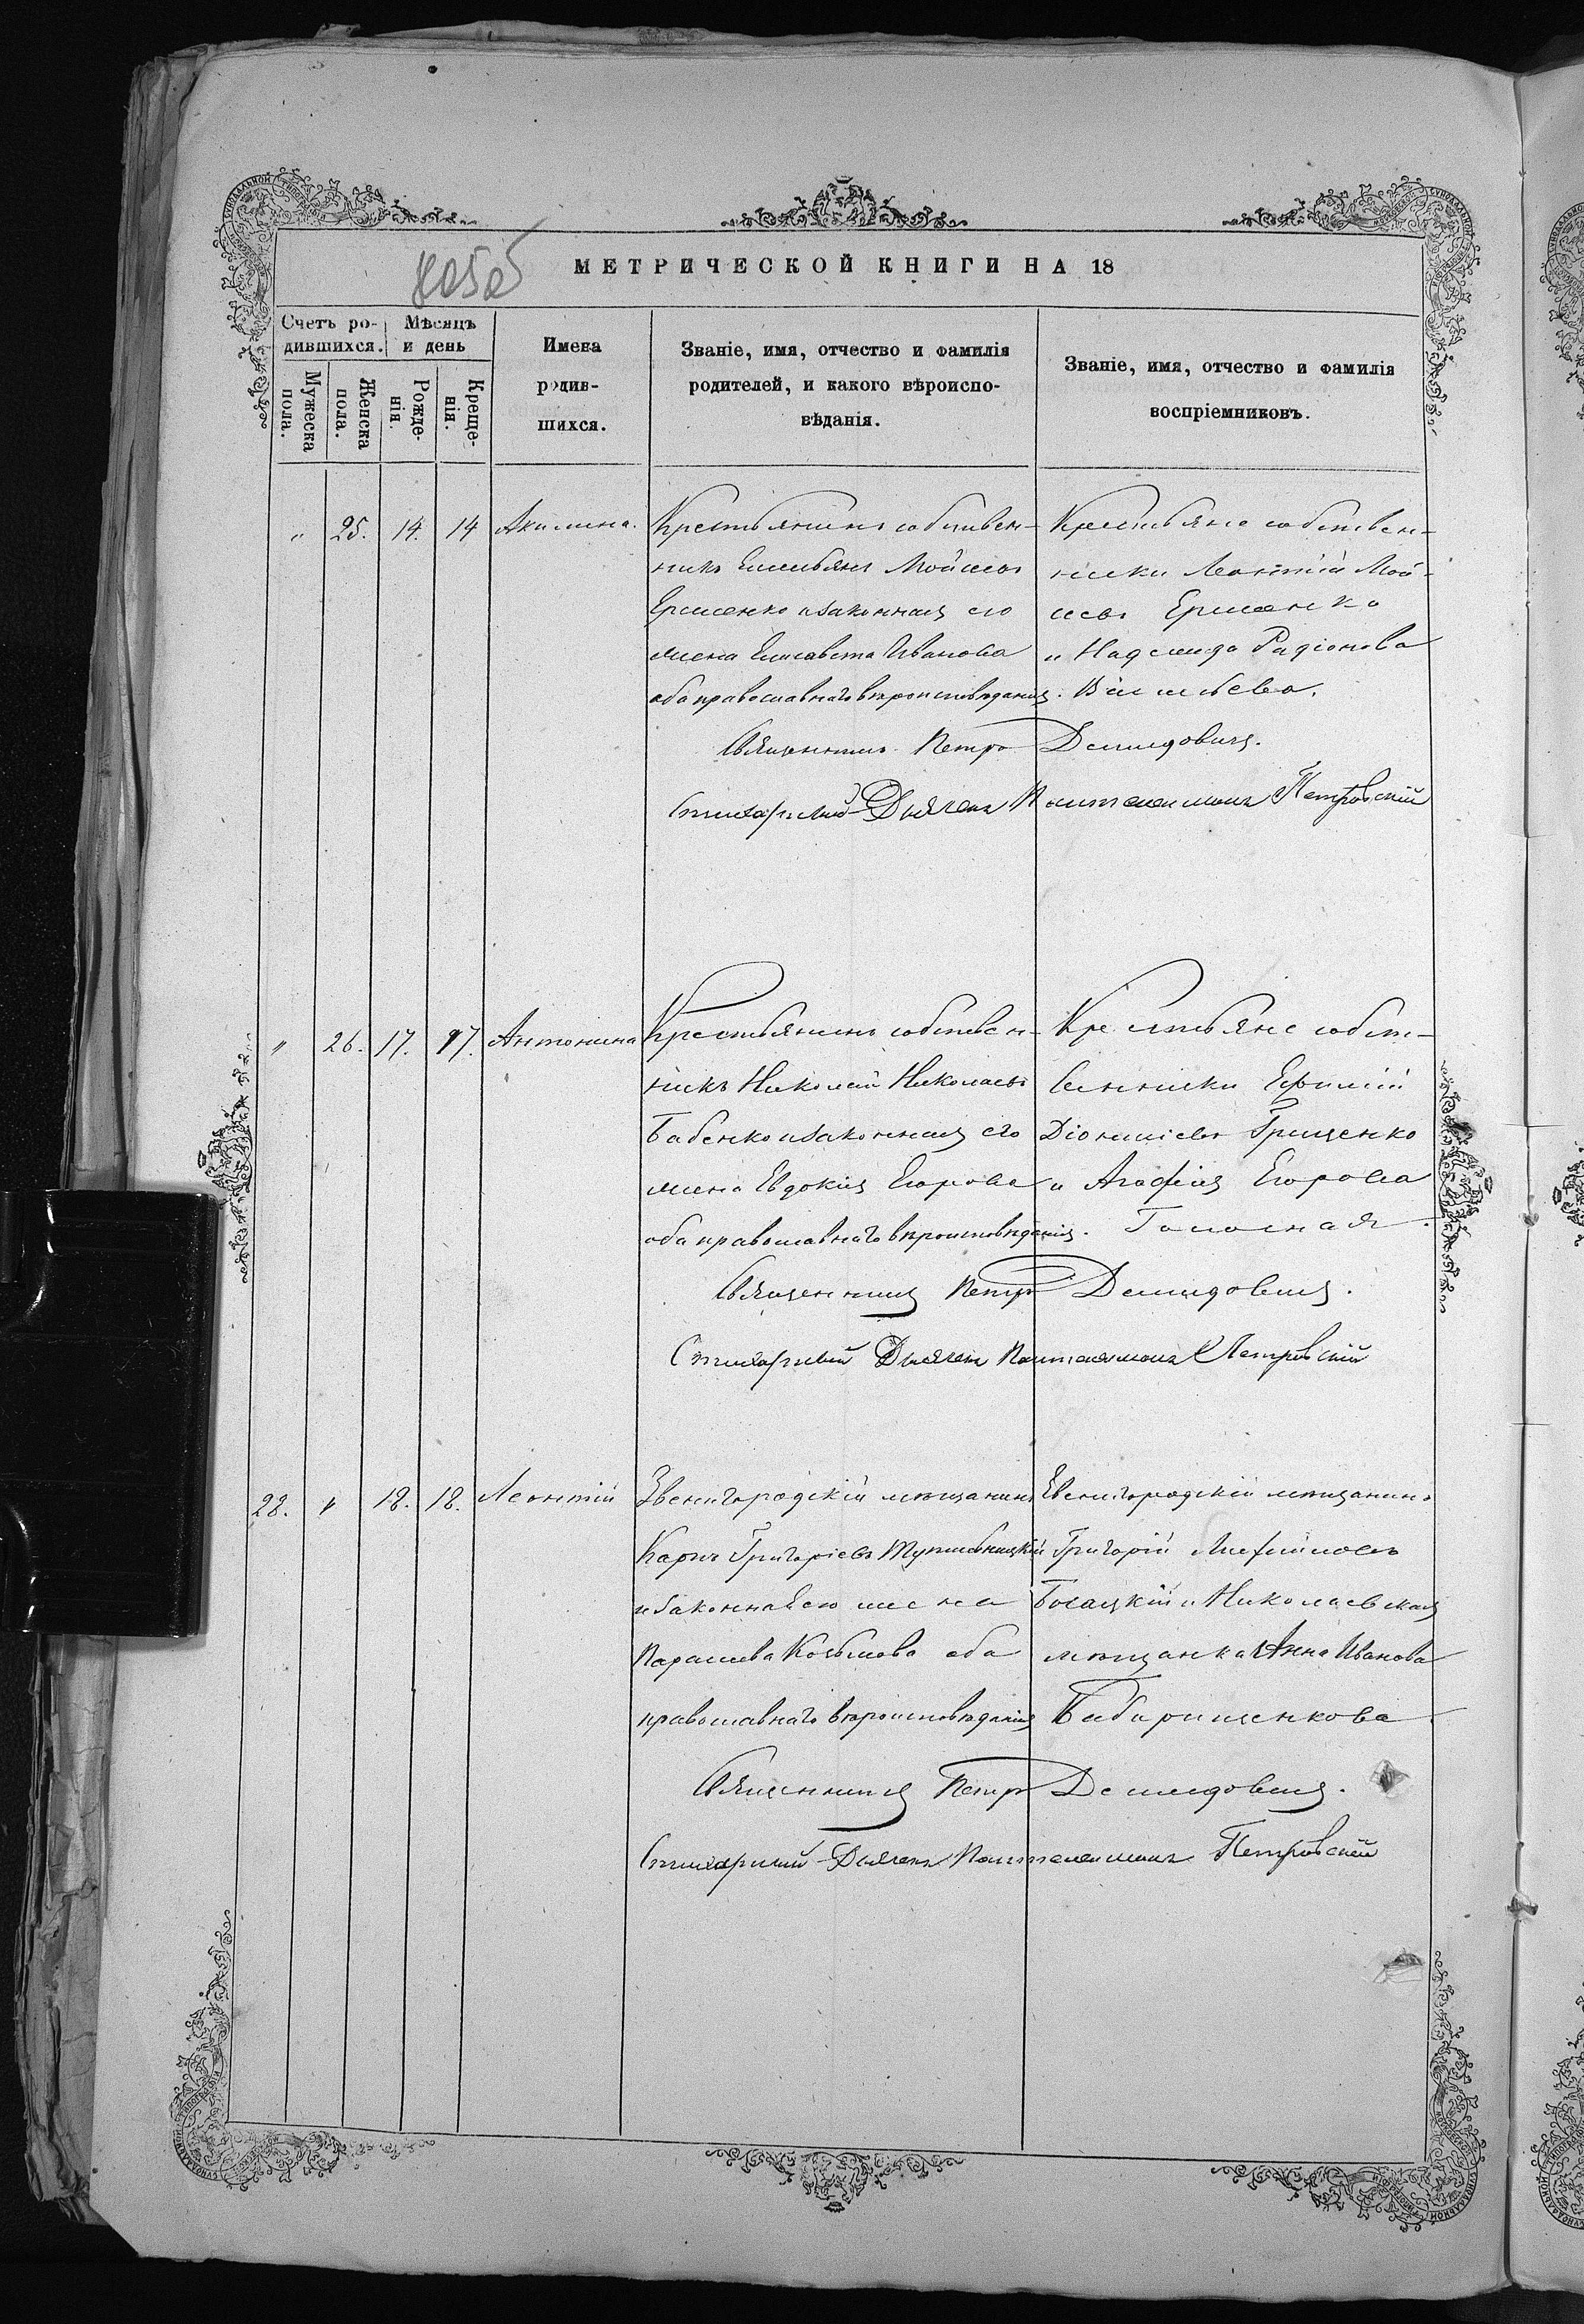 МЕТРИЧЕСКОЙ КНИГИ НА 18
Счетъ ро-
дившихся.
Мѣсяцъ
и день
Мужеска
пола.
Женска
пола.
Рожде-
нія.
Креще-
нія.
Имена
родив-
шихся.
Званіе, имя, отчество и фамилія
родителей, и какого вѣроиспо-
вѣданія.
Званіе, имя, отчество и фамилія
воспріемниковъ.
" 25. 14. 14 Акилина.
Крестьянинъ собствен-
никъ Емельянъ Мойсеевъ
Ермоленко и законная его
жена Елисавета Иванова
оба православнаго вѣроисповѣданія.
Крестьяне собствен-
ники Леонтій Мой-
сеевъ
и Надежда Радіонова
Священникъ Петръ Демидовичъ.
Стихарный Дьячекъ Пантелеимонъ Петровскій
" 26. 17. 17. Антонина
Крестьянинъ собствен-
никъ Николай Николаевъ
Бабенко и законная его
жена Евдокія Егорова
оба православнаго вѣроисповѣданія.
Крестьяне собст-
венники Ефимій
Діонисіевъ Грищенко
и Агафія Егорова
Священникъ Петръ Демидовичъ.
Стихарный Дьячекъ Пантелеимонъ Петровскій
28. " 18. 18. Леонтій
Звенигородскій мѣщанинъ
Карпъ Григоріевъ
и законная его жена
Параскева Козьмова оба
православнаго вѣроисповѣданія
Звенигородскій мѣщанинъ
Григорій
и Николаевская
мѣщанка Анна Иванова
Священникъ Петръ Демидовичъ.
Стихарный Дьячекъ Пантелеимонъ Петровскій